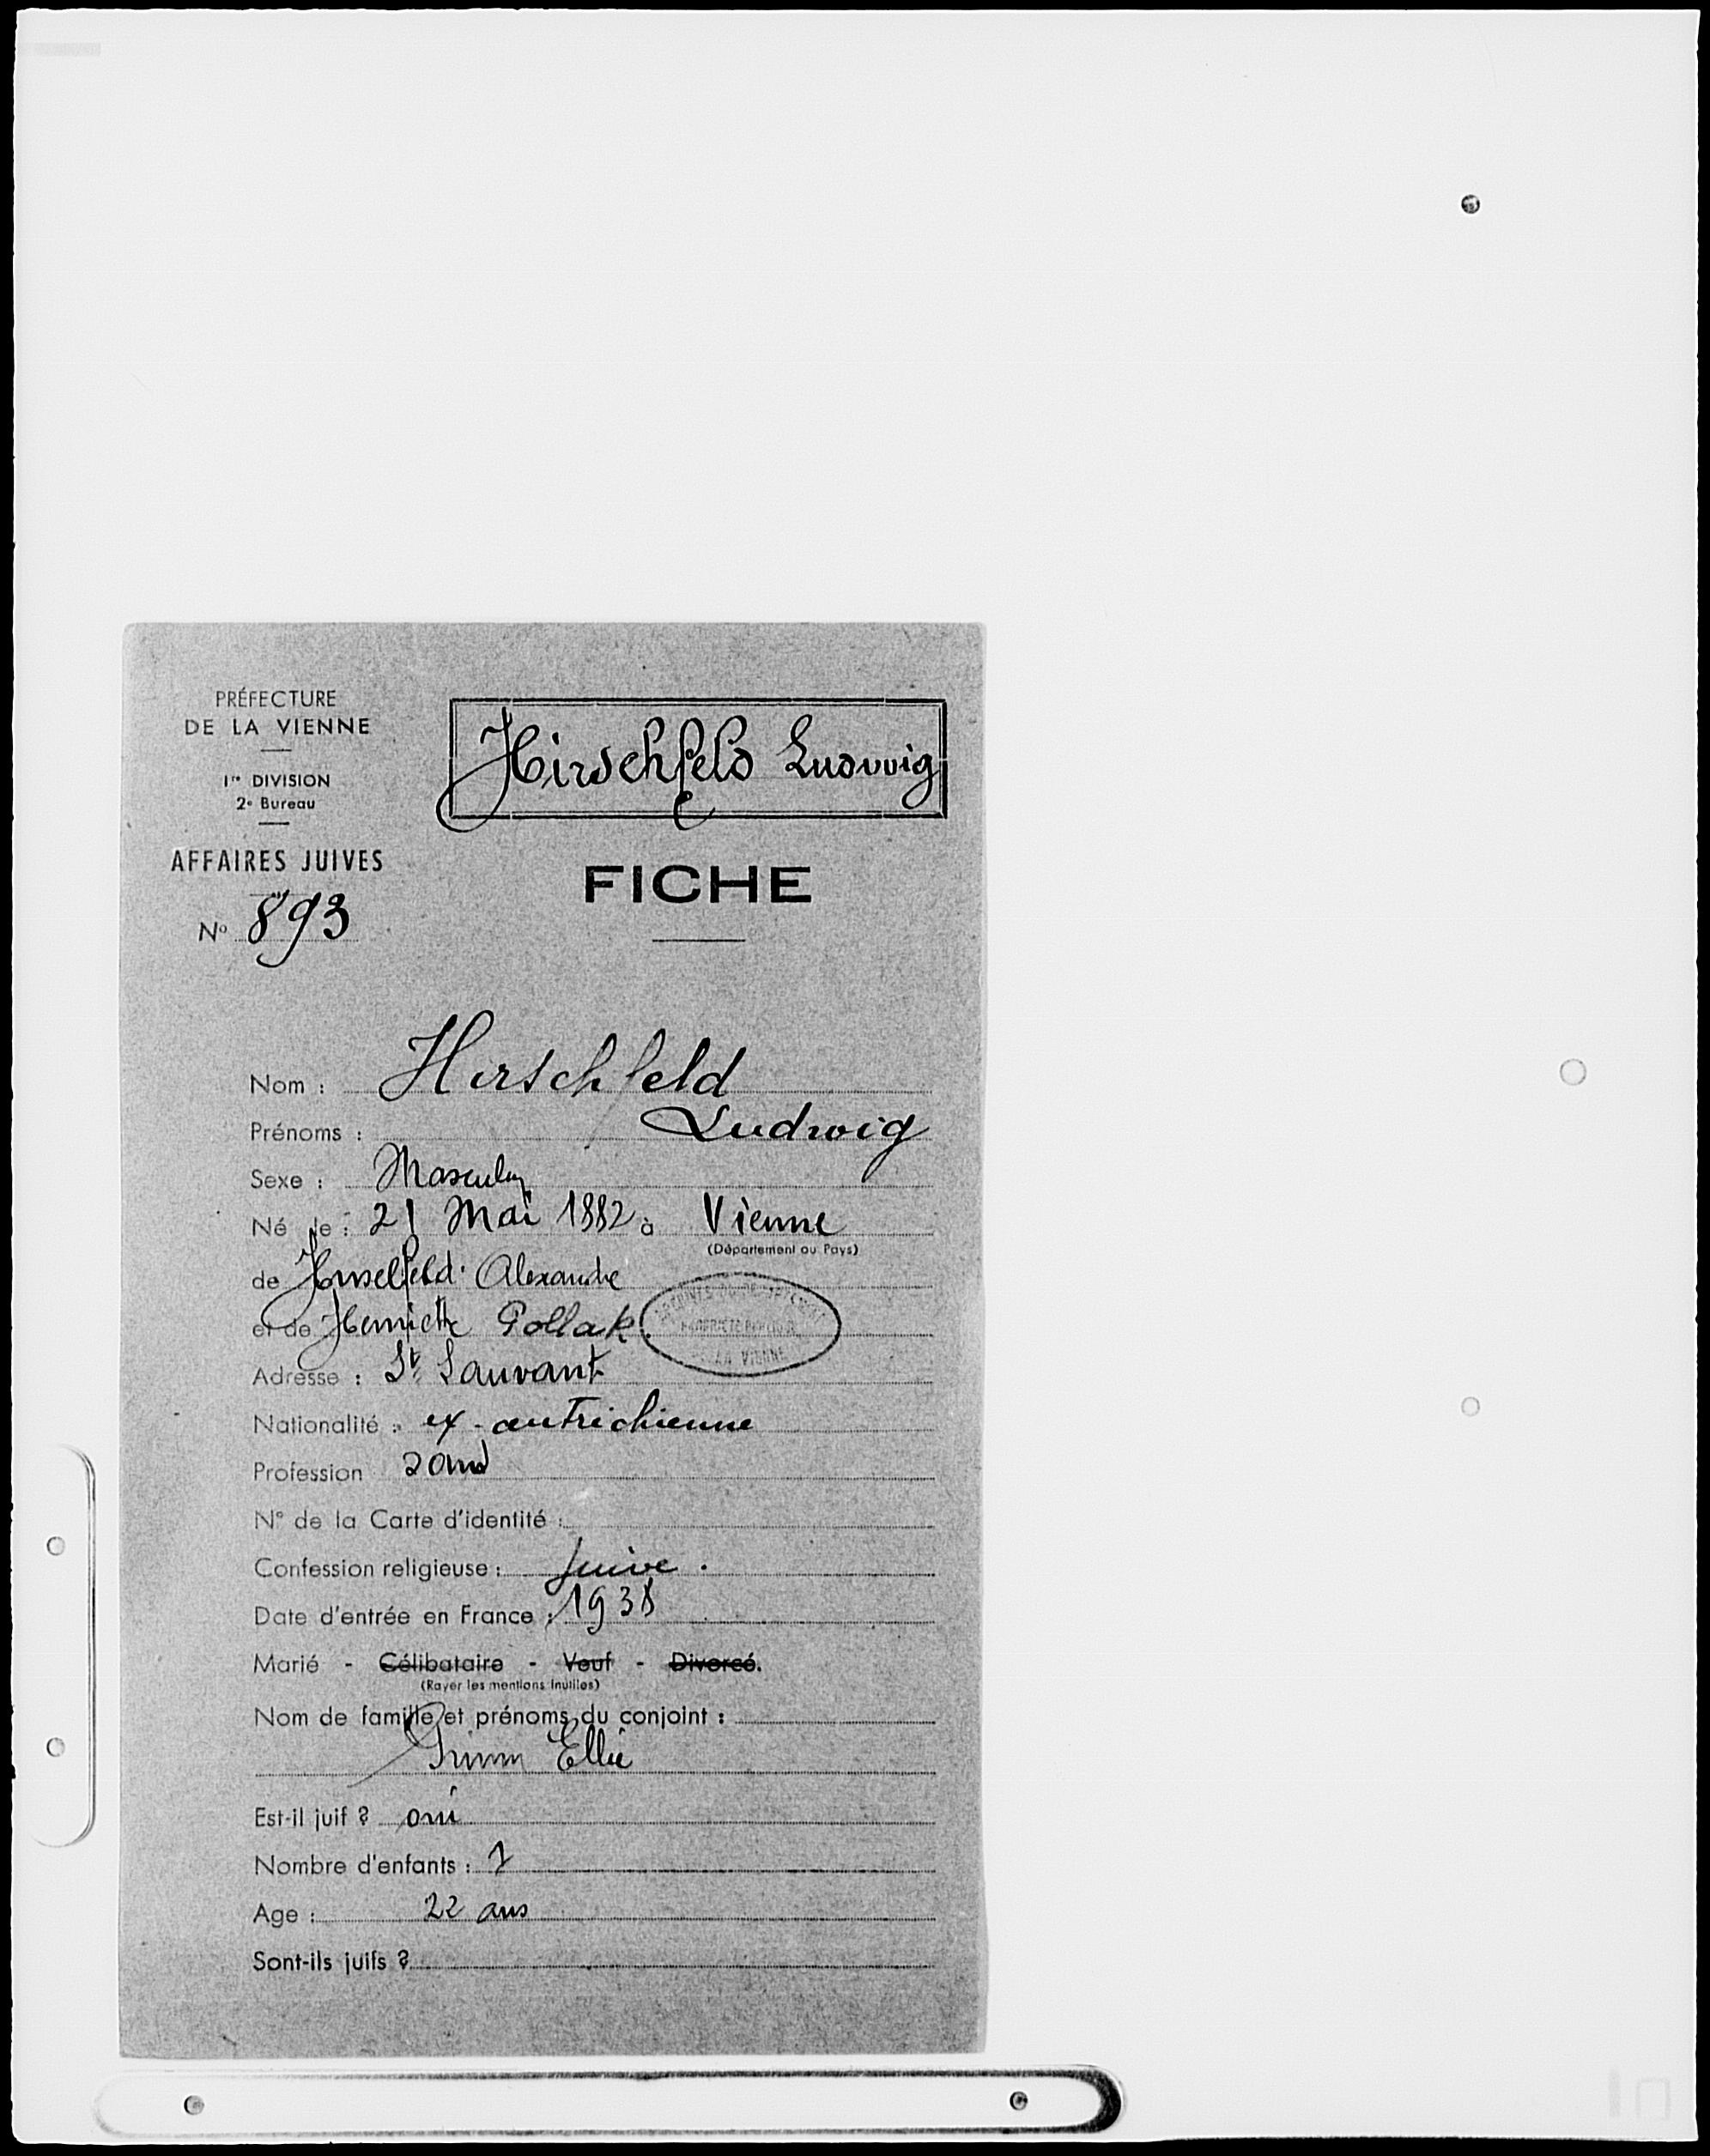 PRÉFECTURE
DE LA VIENNE
1re DIVISION
2e Bureau
AFFAIRES JUIVES
No 893
Hirschfeld Ludwig
FICHE
Nom : Hirschfeld
Prénoms : Ludwig
Sexe : Masculin
Né le : 21 Mai 1882 à Vienne
(Département ou Pays)
de Alexandre
et de Henriette Pollak
LA VIENNE
Adresse : St Sauvant
Nationalité : ex-autrichienne
Profession sans
No de la Carte d'identité :
Confession religieuse : Juive.
Date d'entrée en France : 1938
Marié - Célibataire - Veuf - Divorcé.
(Rayer les mentions inutiles)
Nom de famille et prénoms du conjoint :
Ellie
Est-il juif ? oui
Nombre d'enfants : 1
Age : 22 ans
Sont-ils juifs ?